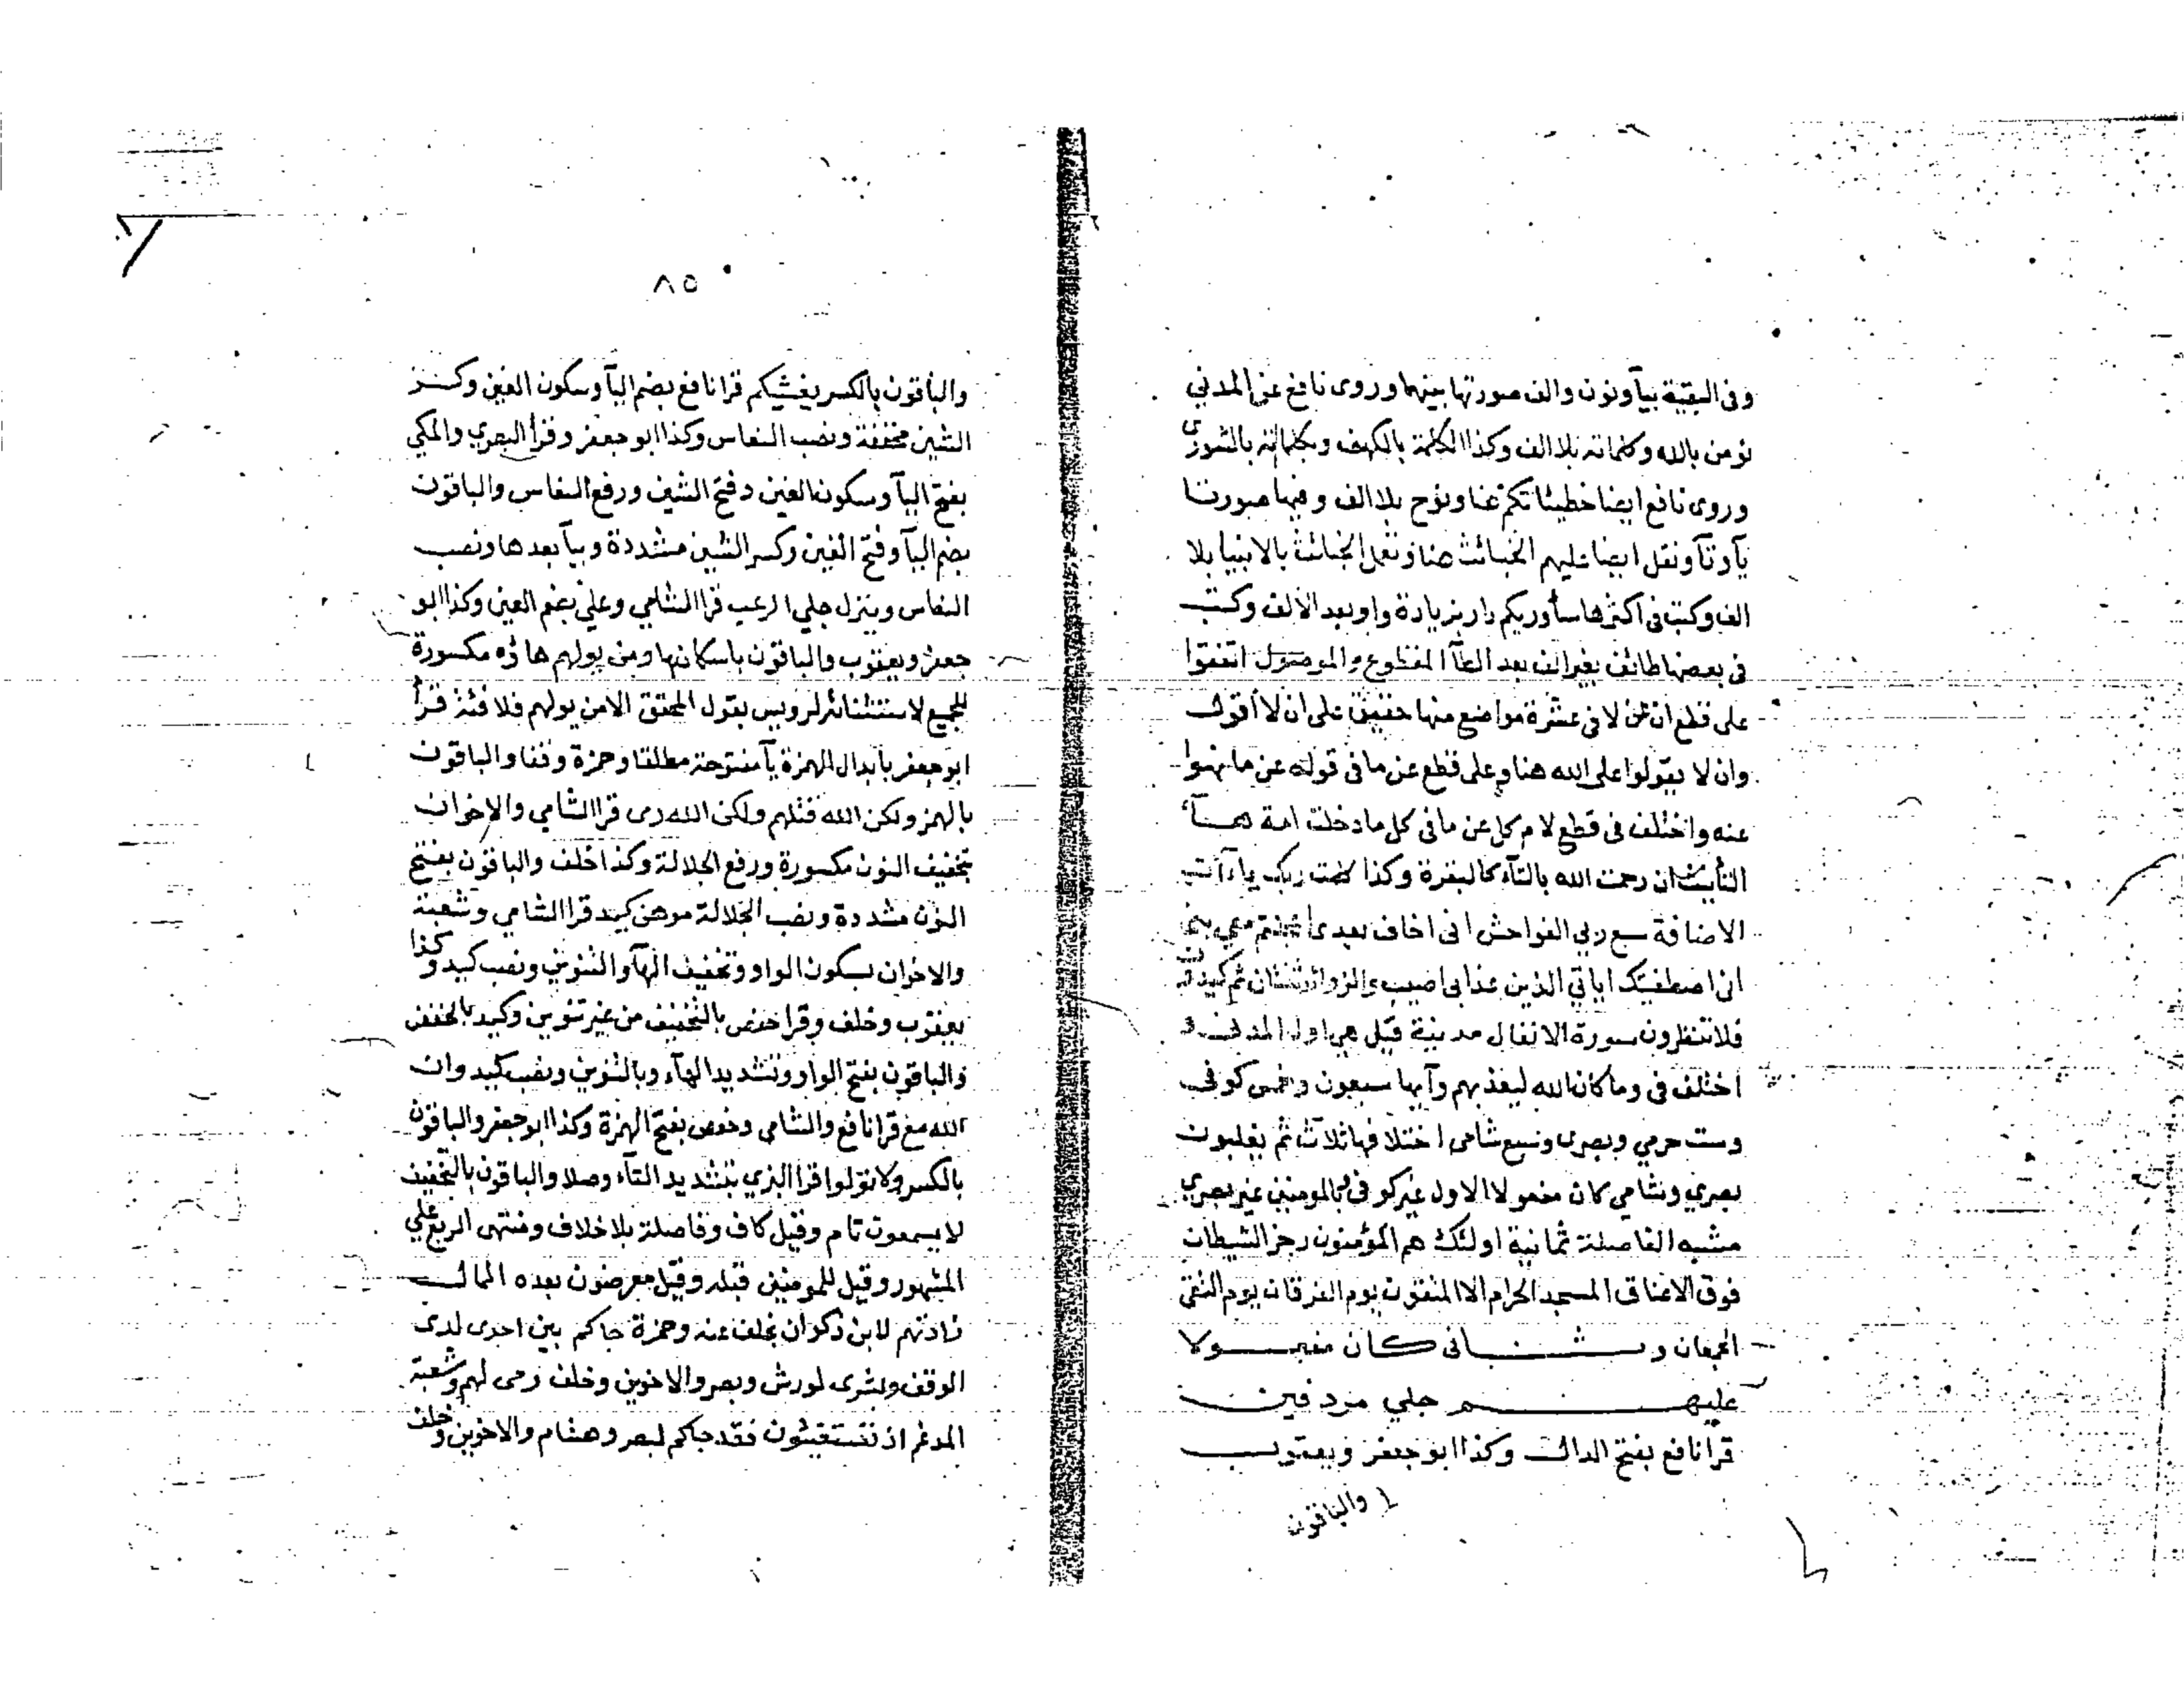 وفى البقية بيآ ونون والف صورتها بينهما وروى نافع عن المدني
نؤمن بالله وكلماته بلا الف وكذا الكلمة بالكهف وبكلماته بالشورى
وروى نافع ايضا خطيئاتكم هنا ونوح بلا الف وفيها صورتا
يآ وتآ ونقل ايضا عليهم الخبائث هنا وتعمل الخبائث بالانبيا بلا
الف وكتب فى اكثرها سأوريكم دار بزيادة واو بعد الالف وكتب
فى بعضها طائف بغير الف بعد الطآ المقطوع والموصول اتفقوا
على قطع ان عن لا فى عشرة مواضع منها حقيق على ان لا أقول
وان لا يقولوا على الله هنا وعلى قطع عن ما فى قوله عن ما نهوا
عنه واختلف فى قطع لام كل عن ما فى كل ما دخلت امة هــآ
التأنيث ان رحمت الله بالتآء كالبقرة وكذا كلمت ربك يا آت
الاضافة سبع ربي الفواحش انى اخاف بعدى اعجلتم معي بني
انى اصطفيتك اياتي الذين عذابى اصيب والزوائد ثنتان ثم كيدون
فلا تنظرون سورة الانفال مدنية قيل هي اول المدني و
اختلف فى وما كان الله ليعذبهم وآيها سبعون وخمس كوفى
وست حرمي وبصرى وسبع شامى اختلافها ثلاث ثم يغلبون
بصري وشامي كان مفعولا الاول غير كوفى وبالمومنين غير بصري
مشبه الفاصلة ثمانية اولئك هم المؤمنون رجز الشيطان
فوق الاعناق المسجد الحرام الا المتقون يوم الفرقان يوم التقى
الجمعان وثــانى كان مفعــولا
عليهــم جلي مردفين
قرا نافع بفتح الدال وكذا ابو جعفر ويعقوب
والباقون
٨٥
والباقون بالكسر يغشيكم قرا نافع بضم اليآ وسكون الغين وكسر
الشين مخففة ونصب النعاس وكذا ابو جعفر وقرأ البصري والمكي
بفتح اليآ وسكون الغين وفتح الشين ورفع النعاس والباقون
بضم اليآ وفتح الغين وكسر الشين مشددة وبيآ بعدها ونصب
النعاس وينزل جلي الرعب قرا الشامي وعلي بضم العين وكذا ابو
جعفر ويعقوب والباقون باسكانها ومن يولهم هاؤه مكسورة
للجميع لاستثنائه لرويس بقول المحقق الا من يولهم فلا فئة قرأ
ابو جعفر بابدال الهمزة يآ مفتوحة مطلقا وحمزة وقفا والباقون
بالهمز ولكن الله قتلهم ولكن الله رمى قرا الشامي والاخوان
بتخفيف النون مكسورة ورفع الجلالة وكذا خلف والباقون بفتح
النون مشددة ونصب الجلالة موهن كيد قرا الشامي وشعبة
والاخوان بسكون الواو وتخفيف الهآ والتنوين ونصب كيد وكذا
يعقوب وخلف وقرا حفص بالتخفيف من غير تنوين وكيد بالخفض
والباقون بفتح الواو وتشديد الهآء وبالتنوين ونصب كيد وان
الله مع قرا نافع والشامي وحفص بفتح الهمزة وكذا ابو جعفر والباقون
بالكسر ولا تولوا قرا البزي بتشديد التآء وصلا والباقون بالتخفيف
لا يسمعون تام وقيل كاف وفاصلة بلا خلاف ومنتهى الربع علي
المشهور وقيل للمومنين قبله وقيل معرضون بعده الممال
زادتهم لابن ذكوان بخلف عنه وحمزة جاكم بين احدى لدى
الوقف وبشرى لورش وبصر والاخوين وخلف رمى لهم وشعبة
المدغم اذ تستغيثون فقد جاكم لبصر وهشام والاخوين وخلف